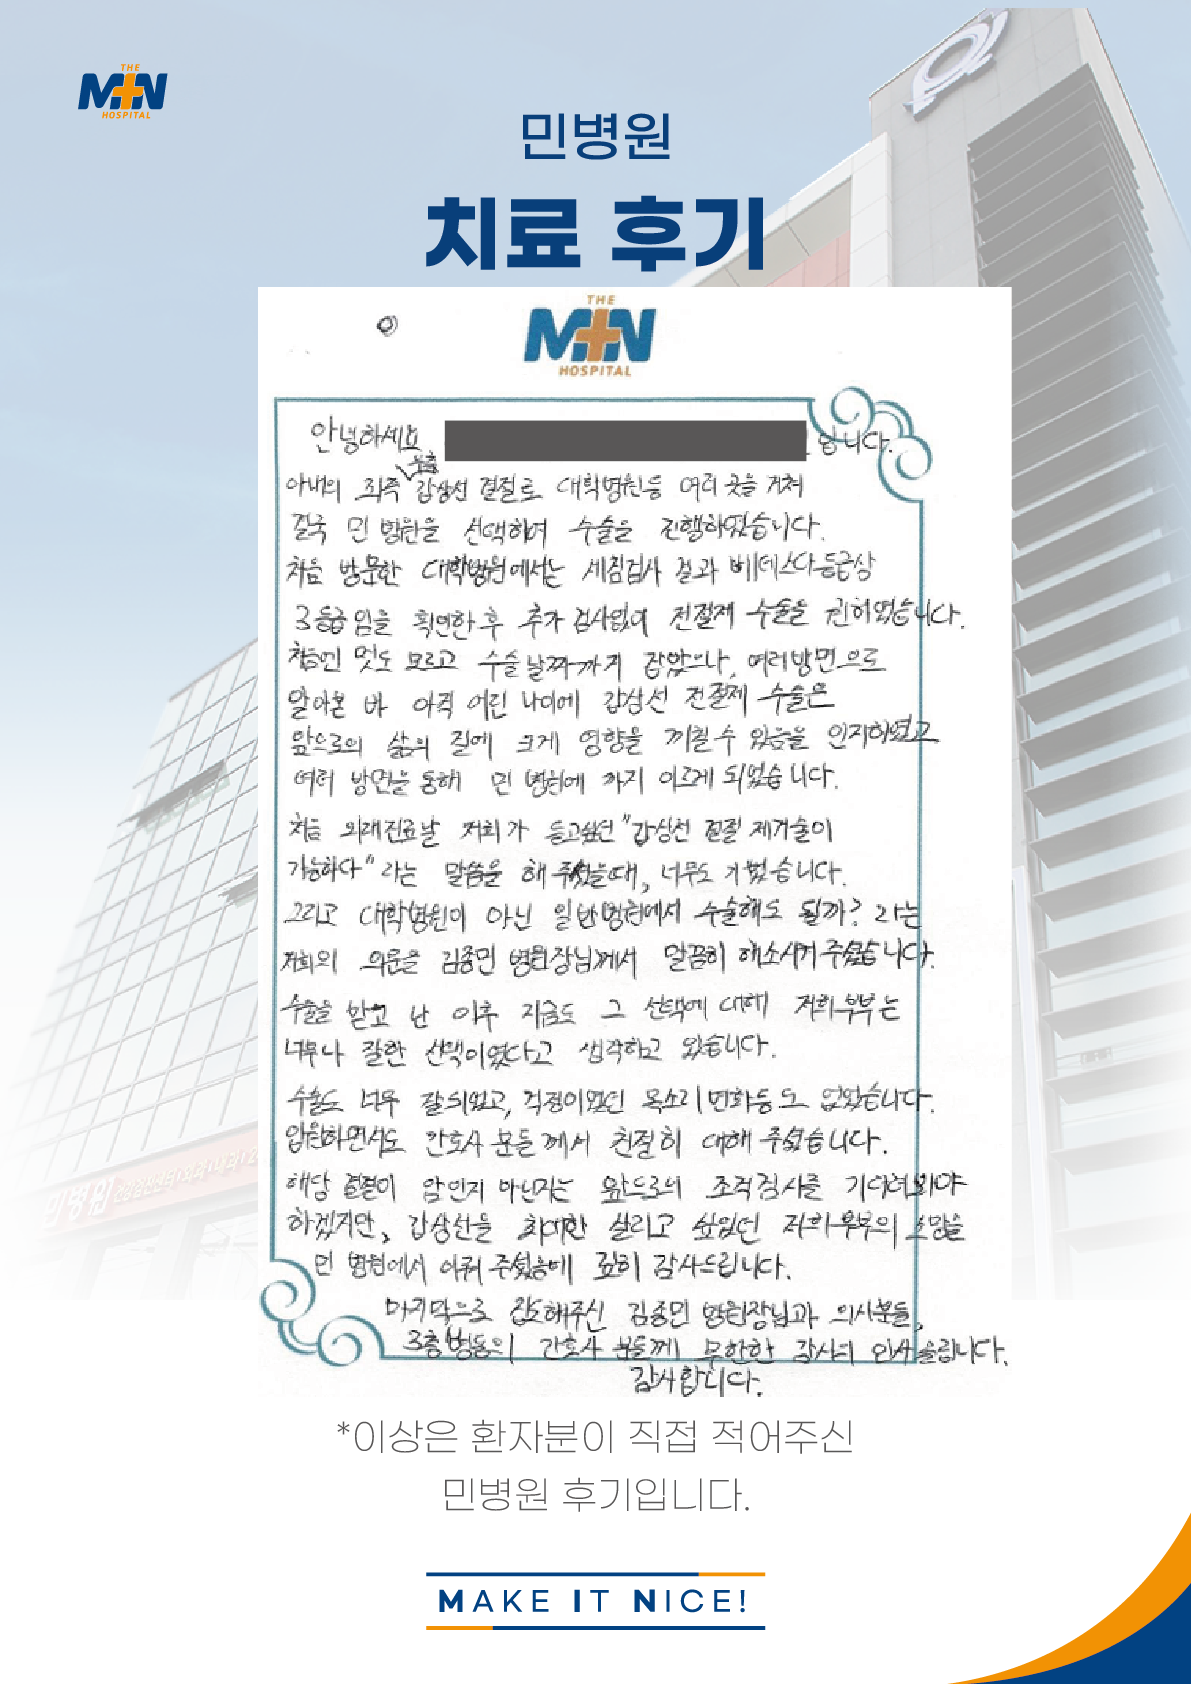 THE
MIN
HOSPITAL
민병원
치료 후기
THE
MIN
HOSPITAL
안녕하세요 입니다.
아내의 좌측 갑상선 결절로 대학병원등 여러 곳을 거쳐
결국 민 병원을 선택하여 수술을 진행하였습니다.
처음 방문한 대학병원에서는 세침검사 결과 베데스다등급상
3등급임을 확인한 후 추가 검사없이 전절제 수술을 권하였습니다.
처음엔 멋도 모르고 수술날짜까지 잡았으나, 여러방면으로
알아본 바 아직 어린 나이에 갑상선 전절제 수술은
앞으로의 삶의 질에 크게 영향을 끼칠 수 있음을 인지하였고
여러 방면을 통해 민 병원에 까지 이르게 되었습니다.
처음 외래진료날 저희가 듣고싶던 "갑상선 결절 제거술이
가능하다" 라는 말씀을 해 주셨을때, 너무도 기뻤습니다.
그리고 대학병원이 아닌 일반병원에서 수술해도 될까? 라는
저희의 의문을 김종민 병원장님께서 말끔히 해소시켜주셨습니다.
수술을 받고 난 이후 지금도 그 선택에 대해 저희부부는
너무나 잘한 선택이였다고 생각하고 있습니다.
수술도 너무 잘되었고, 걱정이였던 목소리변화등도 없었습니다.
입원하면서도 간호사 분들께서 친절히 대해 주셨습니다.
해당 결절이 암인지 아닌지는 앞으로의 조직검사를 기다려봐야
하겠지만, 갑상선을 최대한 살리고 싶었던 저희부부의 소망을
민 병원에서 이뤄 주셨음에 깊히 감사드립니다.
마지막으로 집도해주신 김종민 병원장님과 의사분들,
3층병동의 간호사 분들께 무한한 감사의 인사 올립니다.
감사합니다.
*이상은 환자분이 직접 적어주신
민병원 후기입니다.
MAKE IT NICE!